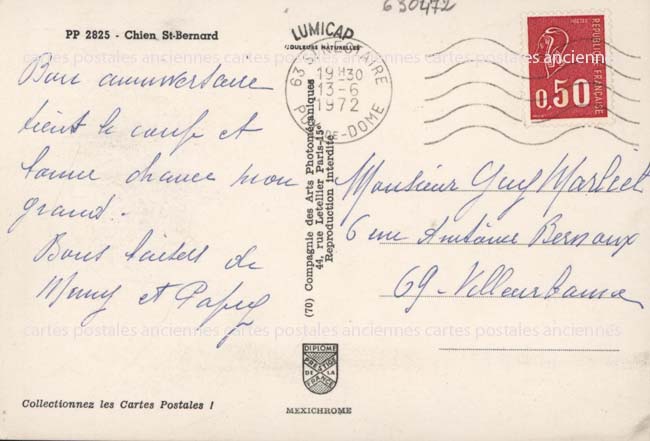 630472
PP 2825 - Chien St-Bernard
LUMICAP
COULEURS NATURELLES
63 ST NECTAIRE
19H30
13-6
1972
PUY-DE-DOME
POSTES
REPUBLIQUE FRANÇAISE
0,50
Bon anniversaire
tient le coup et
bonne chance mon
grand.
Bons baisers de
Mamy et Papy
(70) Compagnie des Arts Photomécaniques
44, rue Letellier Paris-15e
Reproduction interdite
Monsieur Guy
6 rue Antoine Bernoux
69 - Villeurbanne
cartes postales anciennes cartes postales anciennes cartes postales anciennes
cartes postales anciennes cartes postales anciennes cartes postales anciennes
DIPLOME
PRESTIGE
DE LA
FRANCE
MEXICHROME
Collectionnez les Cartes Postales !